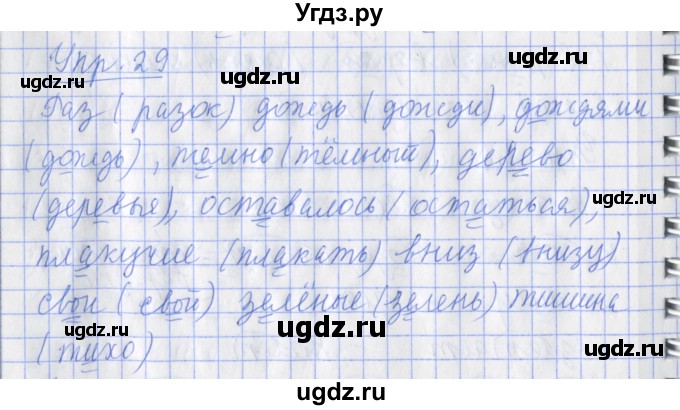 Угдз.ру
Упр. 29
ugdz.ru ugdz.ru
Раз (разок) дождь (дожди), дождями
ugdz.ru
(дождь), темно (тёмный), дерево
ugdz.ru
(деревья), оставалось (остаться),
ugdz.ru
плакучие (плакать) вниз (внизу)
ugdz.ru
свои (свой) зелёные (зелень) тишина
ugdz.ru ugdz.ru
(тихо)
ugdz.ru